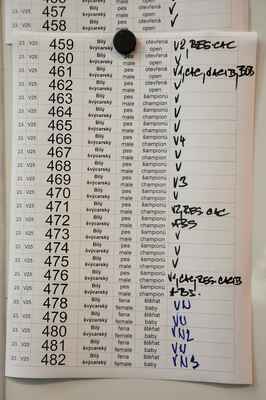 457 švýcarský male open V
23. V25 458 Bílý švýcarský pes male otevřená open V
23. V25 459 Bílý švýcarský pes male otevřená open V2, RES. CAC
23. V25 460 Bílý švýcarský pes male otevřená open V
23. V25 461 Bílý švýcarský pes male otevřená open V1, CAC, CACIB, BOB
23. V25 462 Bílý švýcarský pes male otevřená open V
23. V25 463 Bílý švýcarský pes male šampionů champion V
23. V25 464 Bílý švýcarský pes male šampionů champion V
23. V25 465 Bílý švýcarský pes male šampionů champion V
23. V25 466 Bílý švýcarský pes male šampionů champion V
23. V25 467 Bílý švýcarský pes male šampionů champion V4
23. V25 468 Bílý švýcarský pes male šampionů champion V
23. V25 469 Bílý švýcarský pes male šampionů champion V3
23. V25 470 Bílý švýcarský pes male šampionů champion V
23. V25 471 Bílý švýcarský pes male šampionů champion V2, RES. CAC
23. V25 472 Bílý švýcarský pes male šampionů champion ABS
23. V25 473 Bílý švýcarský pes male šampionů champion V
23. V25 474 Bílý švýcarský pes male šampionů champion V
23. V25 475 Bílý švýcarský pes male šampionů champion V
23. V25 476 Bílý švýcarský pes male šampionů champion V1, CAC, RES. CACIB
23. V25 477 Bílý švýcarský pes male šampionů champion ABS.
23. V25 478 Bílý švýcarský fena female štěňat baby VN
23. V25 479 Bílý švýcarský fena female štěňat baby VN
23. V25 480 Bílý švýcarský fena female štěňat baby VN2
23. V25 481 Bílý švýcarský fena female štěňat baby VN
23. V25 482 Bílý švýcarský fena female štěňat baby VN3